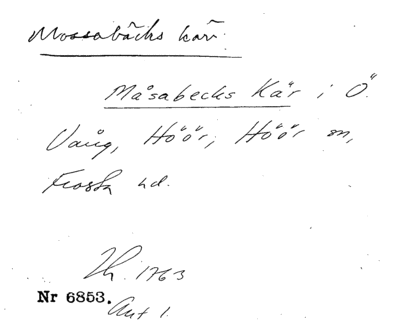 Mossabäcks kärr
Måsabecks Kä̊r i Ö
Vång, Höör, Höör sn,
Frosta hd.
Lh. 1763
Nr 6853.
Akt 1.